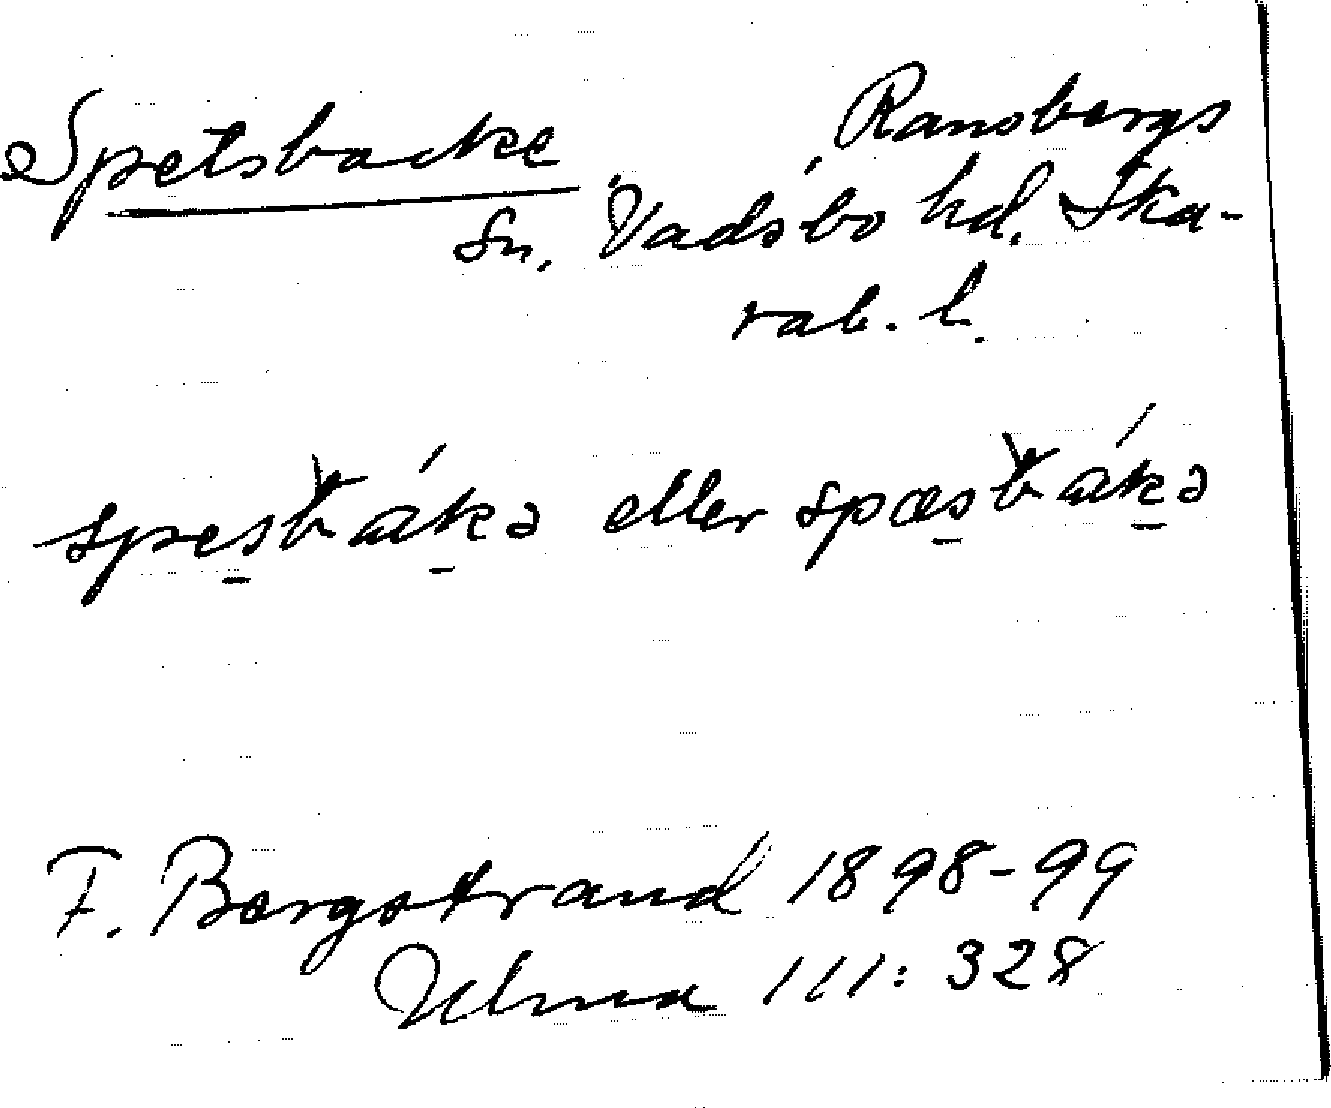 Spetsbacke Ransbergs
sn. Vadsbo hd. Ska-
rab. l.
spesbàkə́ eller spæsbàkə́
F. Bergstrand 1898-99
Ulma 111: 328